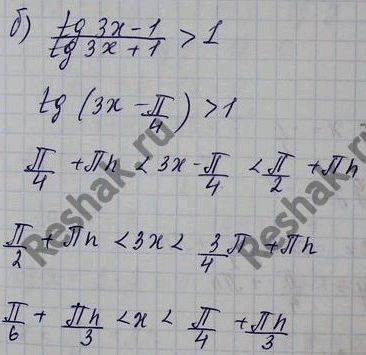 б) tg 3x - 1 / tg 3x + 1 > 1
tg (3x - π/4) > 1
π/4 + πn < 3x - π/4 < π/2 + πn
π/2 + πn < 3x < 3/4 π + πn
π/6 + πn/3 < x < π/4 + πn/3
Reshak.ru
Reshak.ru